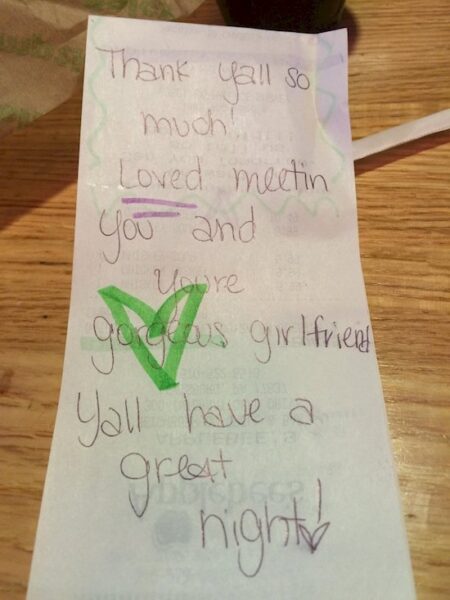 Thank yall so
much!
Loved meetin
you and
youre
gorgeous girlfriend
Yall have a
great
night!